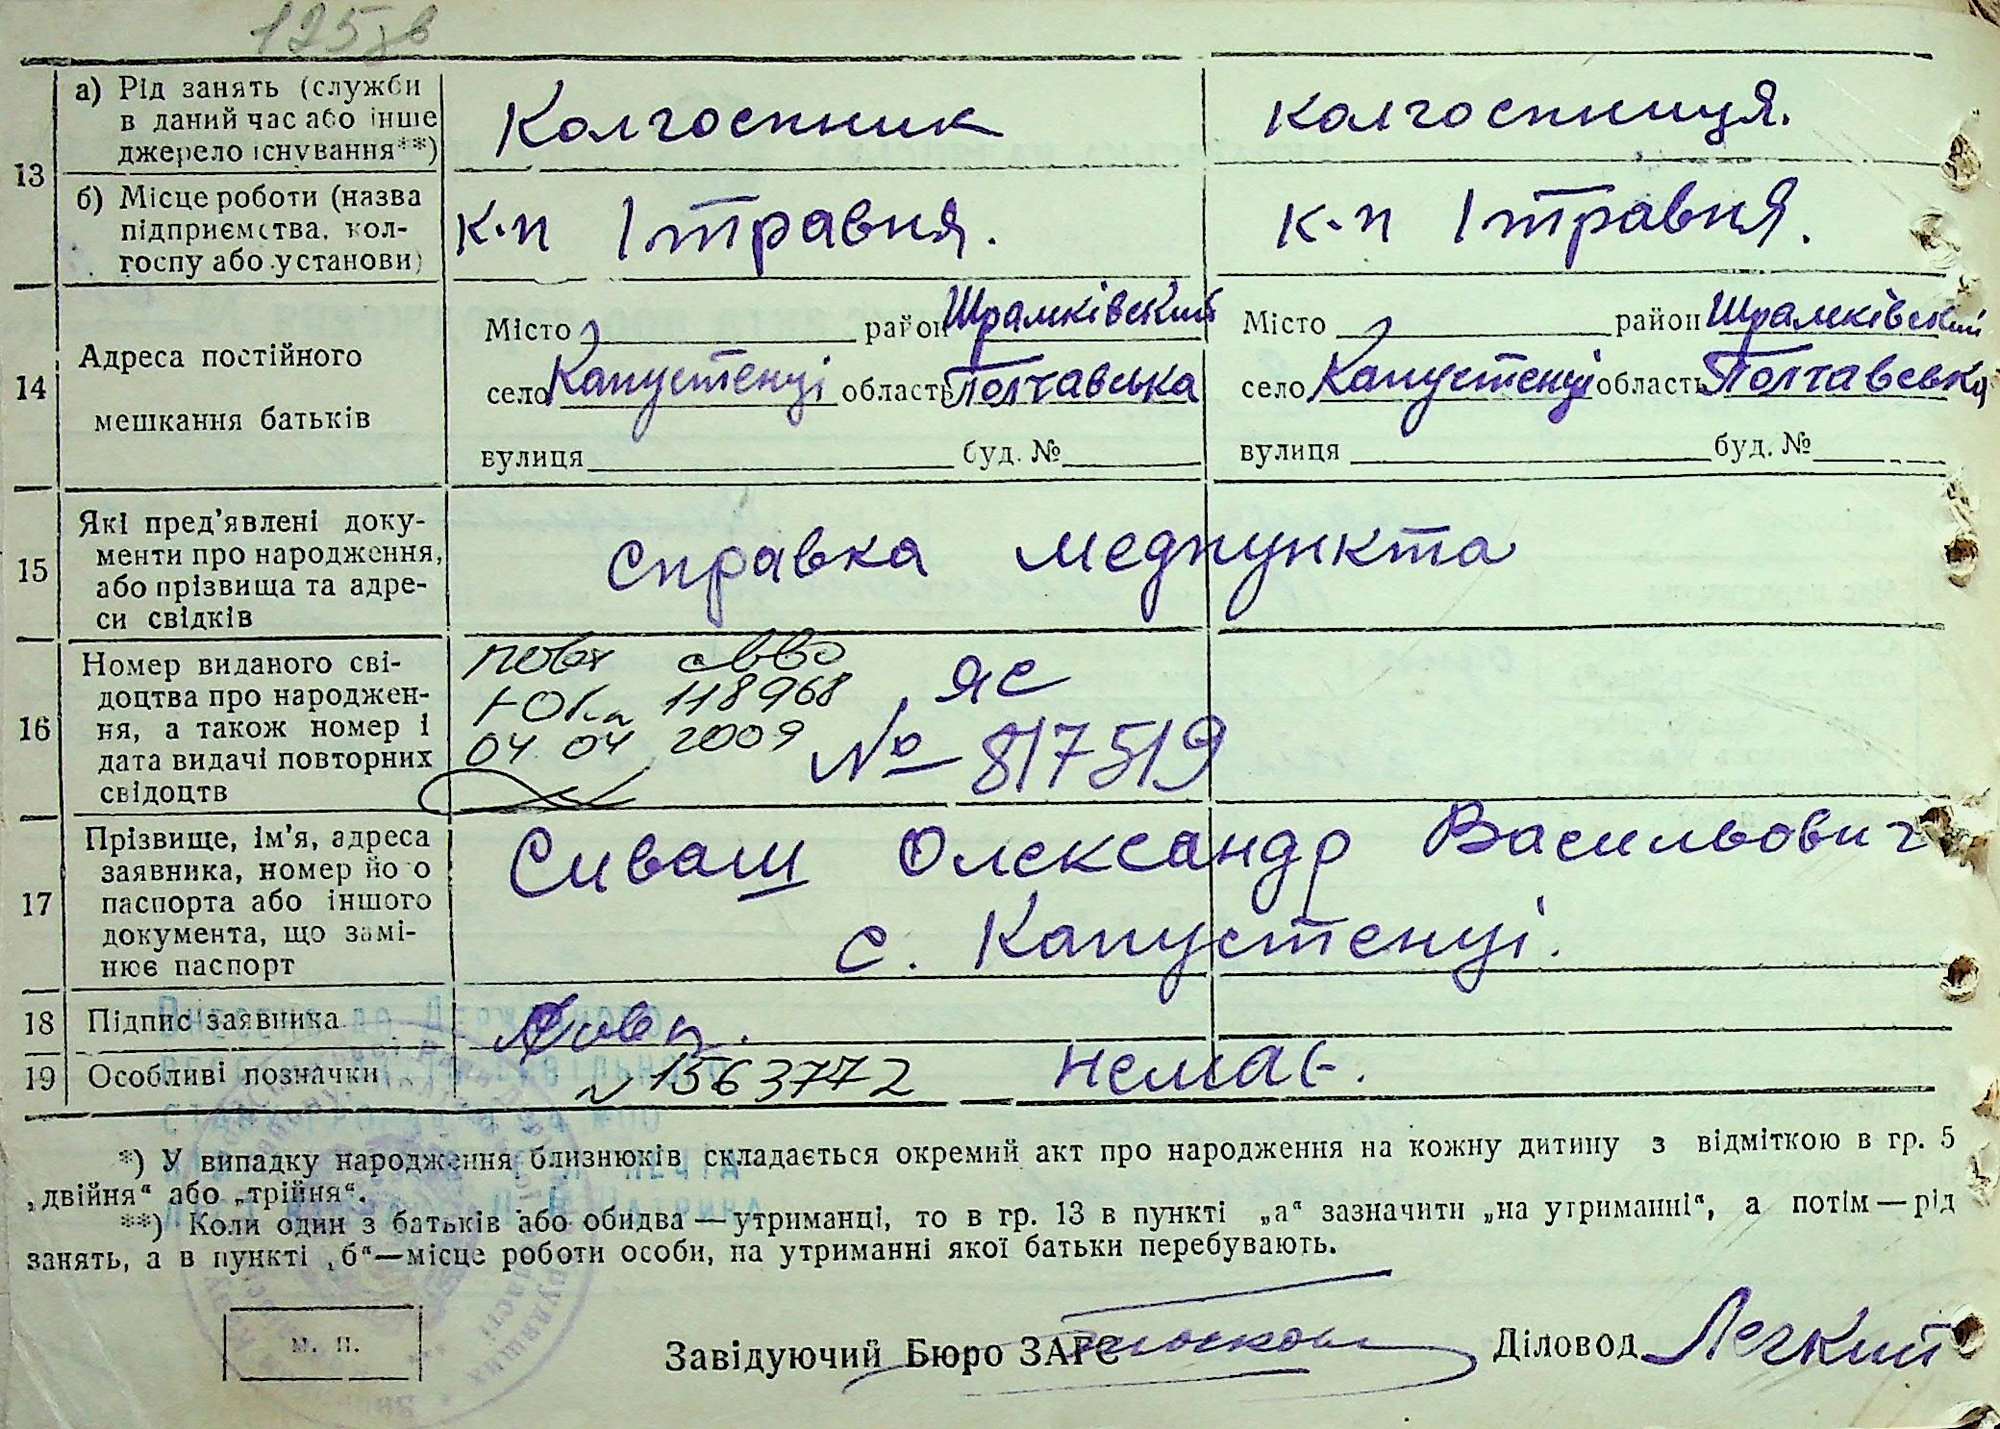 125 зв
13
а) Рід занять (служби
в даний час або інше
джерело існування**)
Колгоспник
колгоспниця.
б) Місце роботи (назва
підприємства, кол-
госпу або установи)
к-п 1 травня.
к-п 1 травня.
14
Адреса постійного
мешкання батьків
Місто район Шрамківський
село Капустенці область Полтавська
вулиця буд. №
Місто район Шрамківський
село Капустенці область Полтавська
вулиця буд. №
15
Які пред'явлені доку-
менти про народження,
або прізвища та адре-
си свідків
справка медпункта
16
Номер виданого сві-
доцтва про народжен-
ня, а також номер і
дата видачі повторних
свідоцтв
118968
04 04 2009
ЯС
№ 817519
17
Прізвище, ім'я, адреса
заявника, номер його
паспорта або іншого
документа, що замі-
нює паспорт
Сиваш Олександр Васильович
с. Капустенці.
18
Підпис заявника
19
Особливі позначки
№ 1563772
немає.
*) У випадку народження близнюків складається окремий акт про народження на кожну дитину з відміткою в гр. 5
„двійня“ або „трійня“.
**) Коли один з батьків або обидва — утриманці, то в гр. 13 в пункті „а“ зазначити „на утриманні“, а потім — рід
занять, а в пункті „б“—місце роботи особи, на утриманні якої батьки перебувають.
М. П.
Завідуючий Бюро ЗАГС
Діловод Легкий